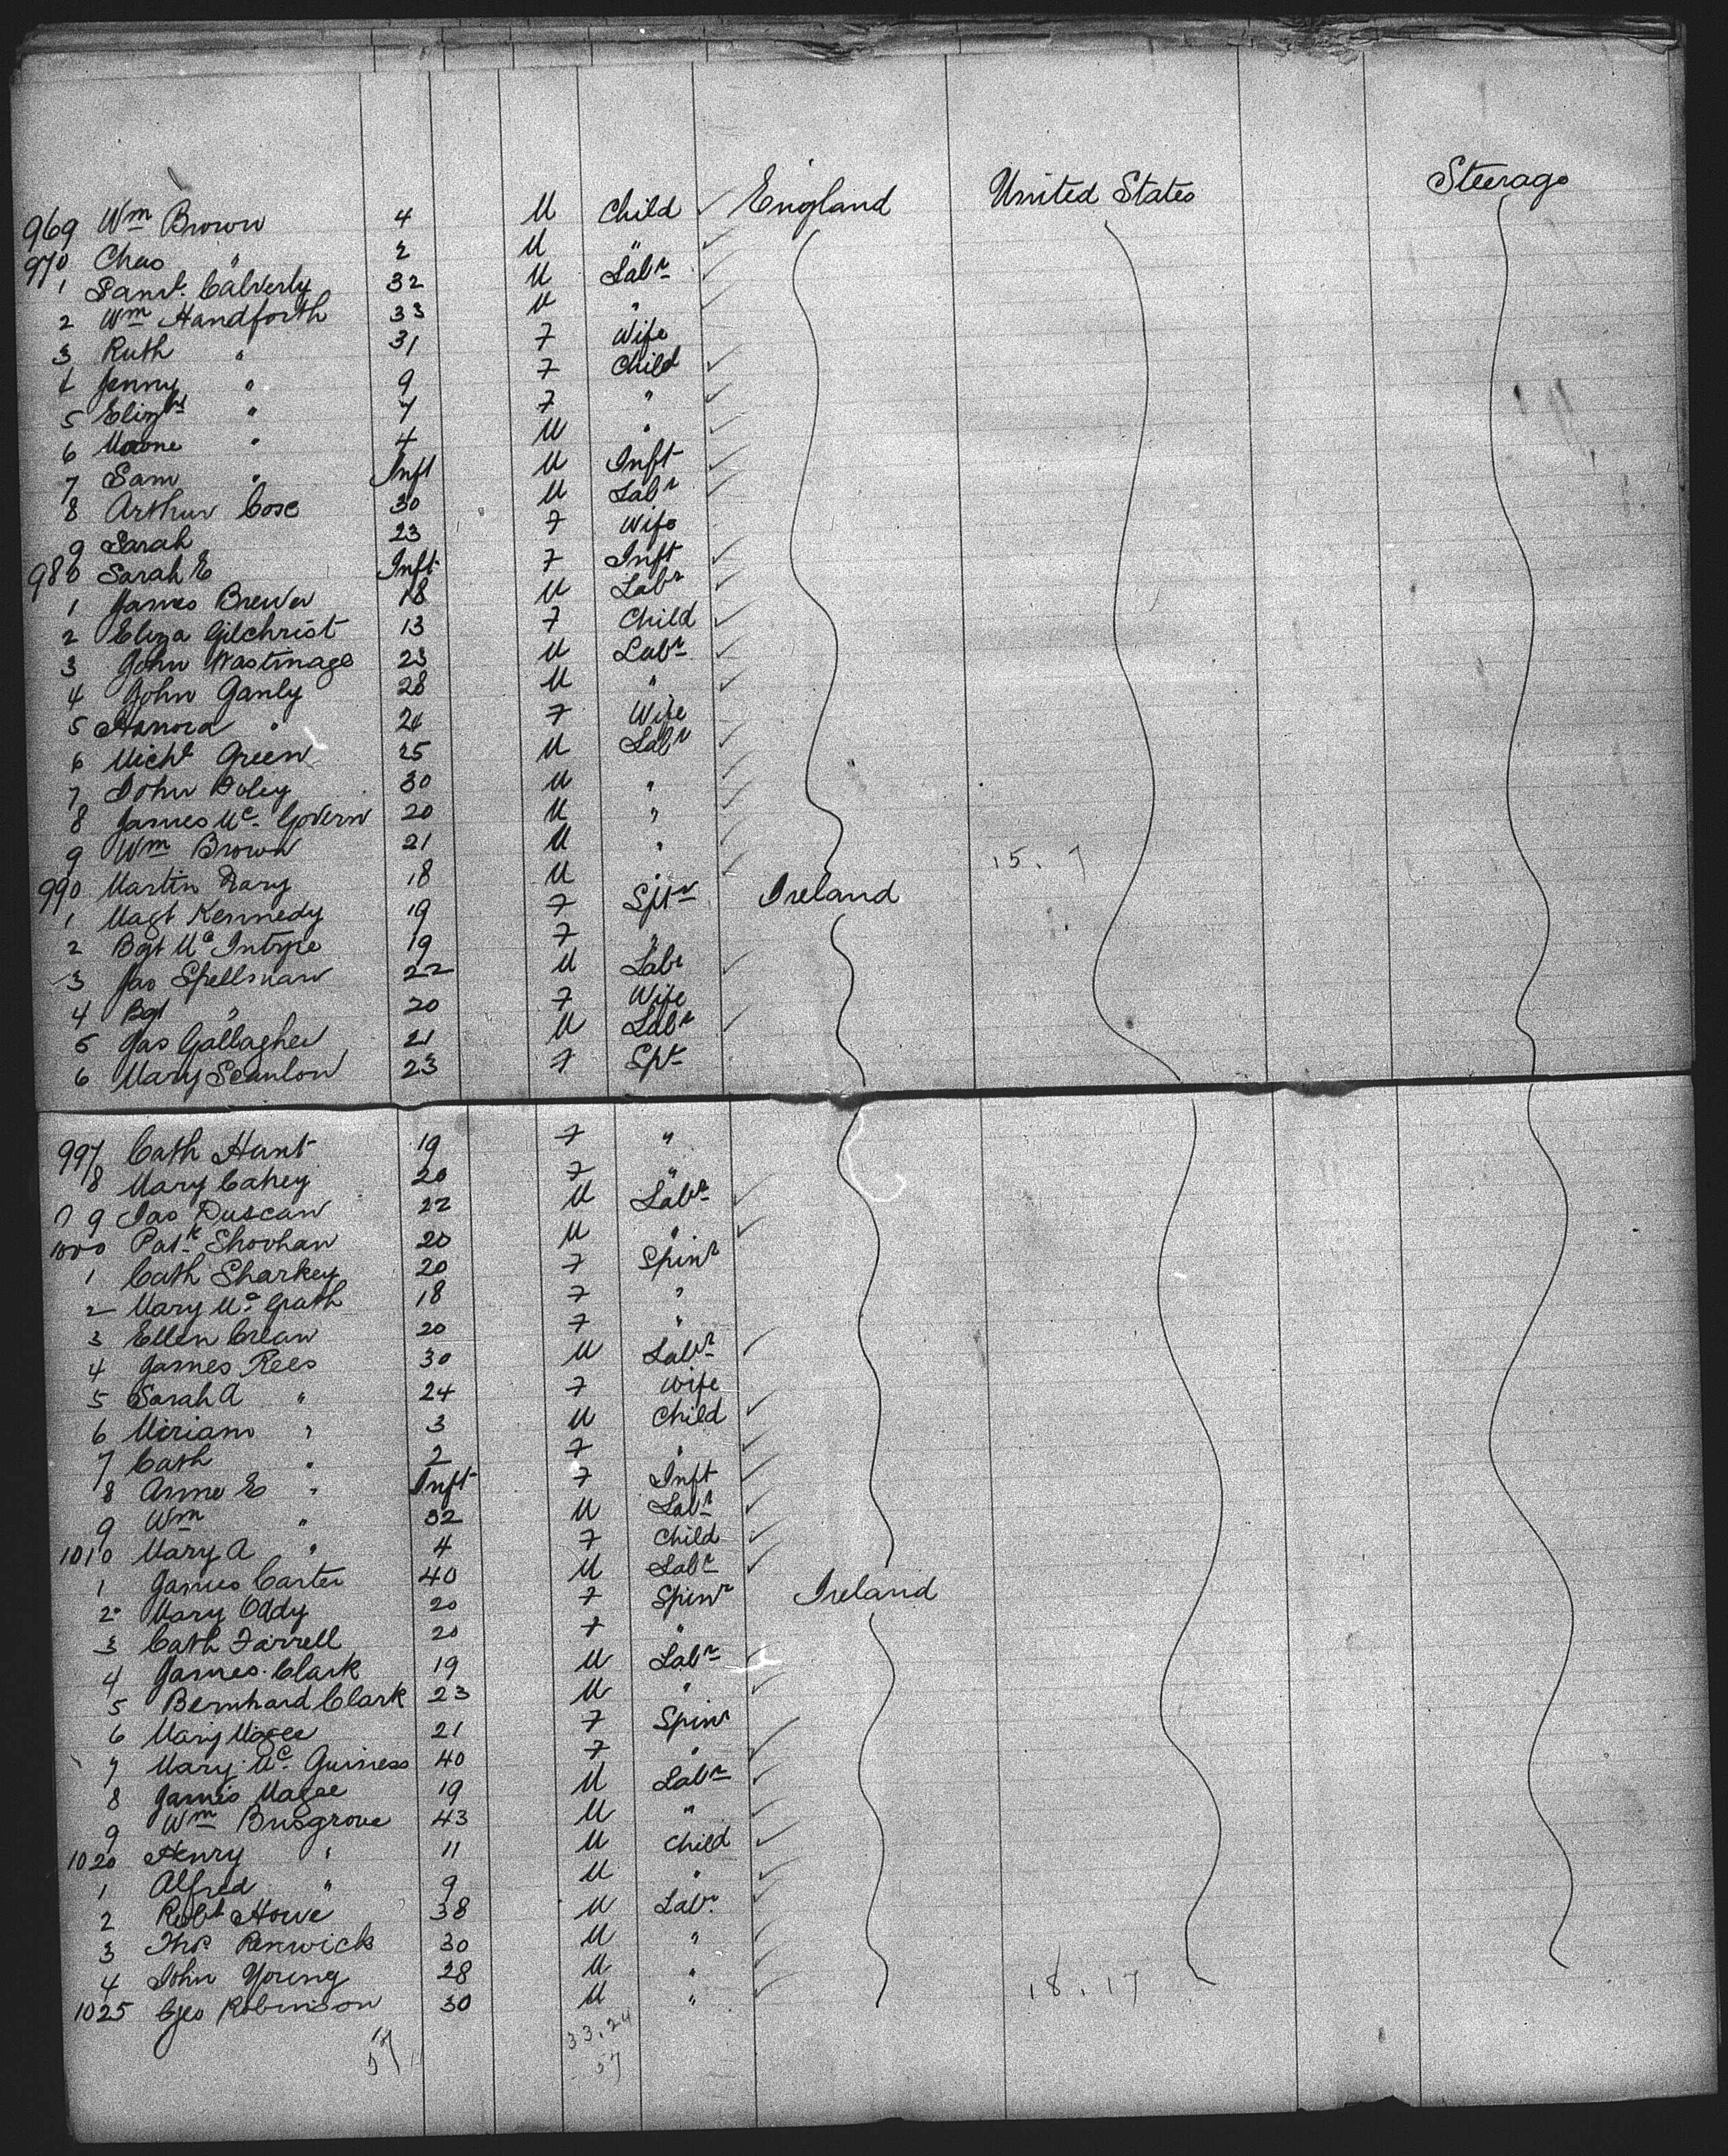 969 Wm Brown 4 M Child England United States Steerage
970 Chas " 2 M "
1 Saml. Calverly 32 M Labr
2 Wm Handforth 33 M "
3 Ruth " 31 F Wife
4 Jenny " 9 F Child
5 Elizth " 7 F "
6 " 4 M "
7 Sam " Inft M Inft
8 Arthur Cose 30 M Labr
9 Sarah 23 F Wife
980 Sarah E Inft F Inft
1 James Brewer 18 M Labr
2 Eliza Gilchrist 13 F Child
3 John Wastnage 23 M Labr
4 John Ganly 28 M "
5 Hanora " 24 F Wife
6 Michl Green 25 M Labr
7 John Boley 30 M "
8 James Mc Govern 20 M "
9 Wm Brown 21 M " 15. 7
990 Martin 18 M " Ireland
1 Magt Kennedy 19 F Spr
2 Bgt Mc Intyre 19 F "
3 Jas Spellman 22 M Labr
4 Bgt " 20 F Wife
5 Jas Gallagher 21 M Labr
6 Mary Scanlon 23 F Spr
997 Cath Hunt 19 F "
8 Mary Cahey 20 F "
9 Jas Duscan 22 M Labr
1000 Patk Shovhan 20 M "
1 Cath Sharkey 20 F Spinr
2 Mary Mc Grath 18 F "
3 Ellen Crean 20 F "
4 James Rees 30 M Labr
5 Sarah A " 24 F Wife
6 Miriam " 3 M Child
7 Cath " 2 F "
8 Anne E " Inft F Inft
9 Wm " 32 M Labr
1010 Mary A " 4 F Child
1 James Carter 40 M Labr Ireland
2 Mary Oddy 20 F Spinr
3 Cath Farrell 20 F "
4 James Clark 19 M Labr
5 Bernhard Clark 23 M "
6 Mary Magee 21 F Spinr
7 Mary Mc Guiness 40 F "
8 James Magee 19 M Labr
9 Wm Busgrove 43 M "
1020 Henry " 11 M Child
1 Alfred " 9 M "
2 Robt Howe 38 M Labr
3 Thos Renwick 30 M "
4 John Young 28 M "
1025 Geo Robinson 30 M " 18. 17
57 33.24
57